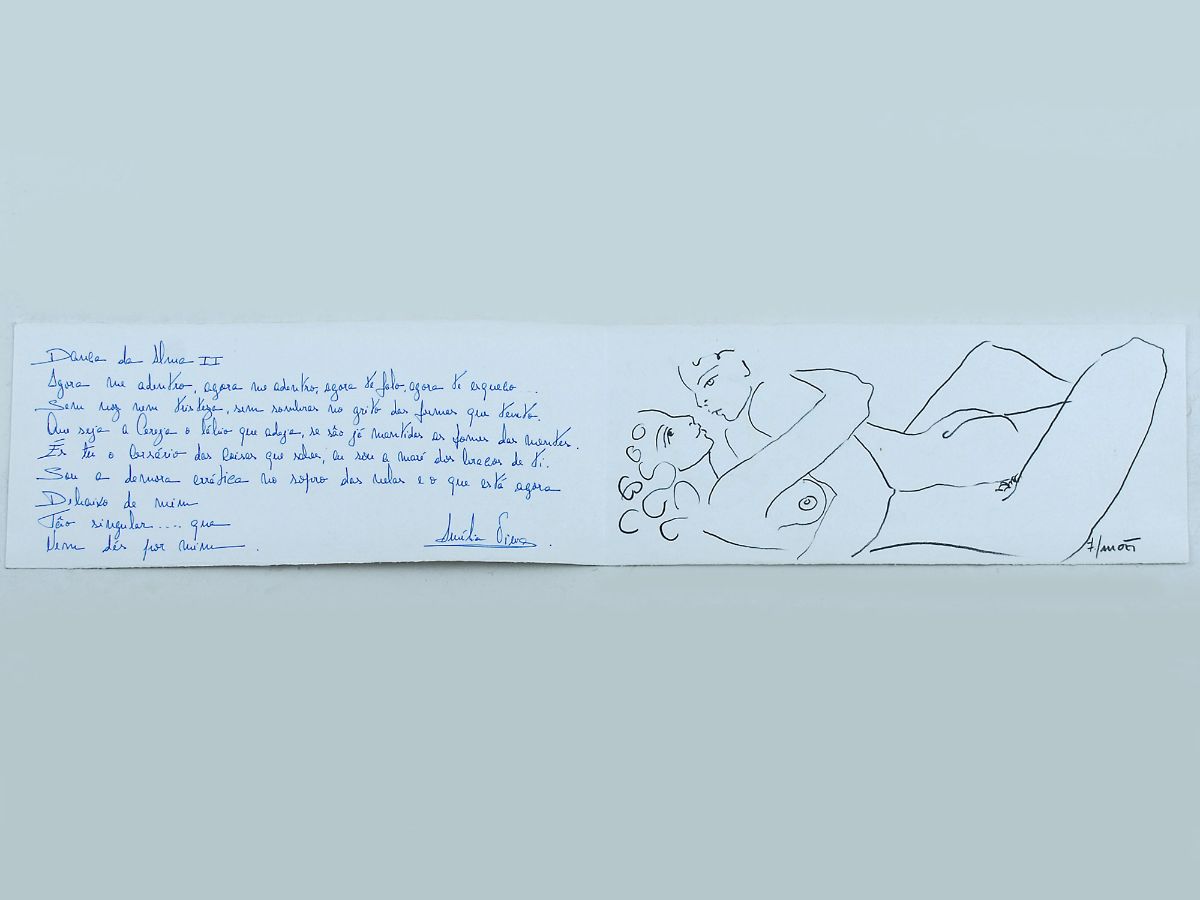 Dança da Alma II
Agora me adentro, agora me adentro, agora te falo, agora te esqueço...
Sem voz nem tristeza, sem sombras no grito das formas que tento.
Que seja a Cereja o lábio que adeja, se são já mantidas as fomes das mentes.
És tu o Corsário das Coisas que sabes, eu sou a maré dos braços de ti.
Sou a demora errática no sopro das velas e o que está agora
Debaixo de mim
Tão singular.... que
Nem dás por mim.